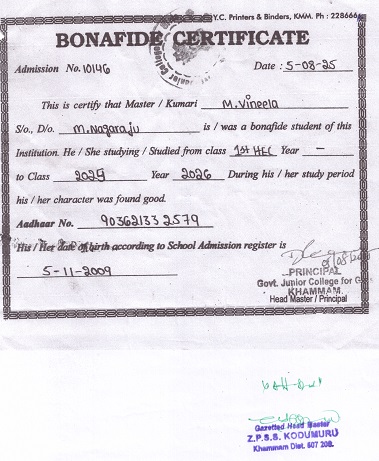 Y.C. Printers & Binders, KMM. Ph : 228666
BONAFIDE CERTIFICATE
Admission No. 10146 Date : 5-08-25
This is certify that Master / Kumari M. Vineela
S/o., D/o. M. Nagaraju is / was a bonafide student of this
Institution. He / She studying / Studied from class 1st HEC Year —
to Class 2025 Year 2026 During his / her study period
his / her character was found good.
Aadhaar No. 903621332579
His / Her date of birth according to School Admission register is
5-11-2009
PRINCIPAL
Govt. Junior College for
KHAMMAM
Head Master / Principal
Gazetted Head Master
Z.P.S.S. KODUMURU
Khammam Dist. 507 208.